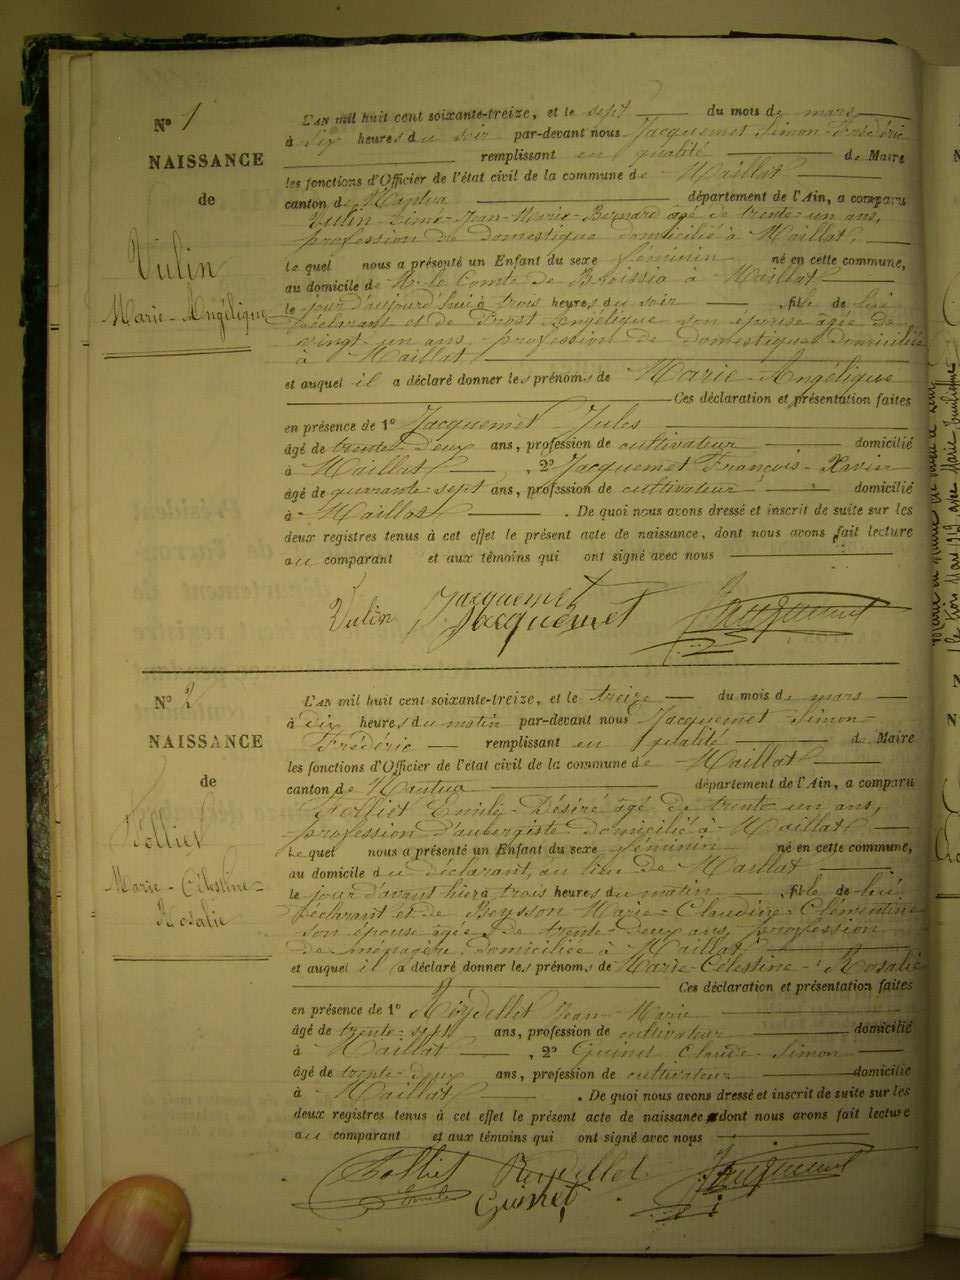 N° 1
NAISSANCE
de
Vulin
Marie-Angélique
L'AN mil huit cent soixante-treize, et le sept du mois de mars
à six heures du soir par-devant nous Jacquemet Simon-Frédéric
remplissant en qualité de Maire
les fonctions d'Officier de l'état civil de la commune de Maillat
canton de Nantua département de l'Ain, a comparu
Vulin Jean-Marie-Bernard âgé de trente-un ans,
profession de domestique domicilié à Maillat,
Le quel nous a présenté un Enfant du sexe féminin né en cette commune,
au domicile de Mr le Comte de Broissia à Maillat
le jour d'aujourd'hui à trois heures du soir fille de lui
déclarant et de Prost Angélique son épouse âgée de
vingt-un ans, profession de domestique domiciliée
à Maillat
et auquel il a déclaré donner les prénoms de Marie-Angélique
Ces déclaration et présentation faites
en présence de 1° Jacquemet Jules
âgé de trente-deux ans, profession de cultivateur domicilié
à Maillat, 2° Jacquemet François-Xavier
âgé de quarante-sept ans, profession de cultivateur domicilié
à Maillat. De quoi nous avons dressé et inscrit de suite sur les
deux registres tenus à cet effet le présent acte de naissance, dont nous avons fait lecture
au comparant et aux témoins qui ont signé avec nous
Vulin Jacquemet Jacquemet
J. Jacquemet
N° 2
NAISSANCE
de
Folliet
Marie-Célestine-
Rosalie
L'AN mil huit cent soixante-treize, et le treize du mois de mars
à dix heures du matin par-devant nous Jacquemet Simon-
Frédéric remplissant en qualité de Maire
les fonctions d'Officier de l'état civil de la commune de Maillat
canton de Nantua département de l'Ain, a comparu
Folliet Emile-Désiré âgé de trente un ans,
profession d'aubergiste domicilié à Maillat
Le quel nous a présenté un Enfant du sexe féminin né en cette commune,
au domicile du déclarant, au lieu de Maillat
le jour d'avant hier à trois heures du matin fille de lui
déclarant et de Beysson Marie-Claudine-Clémentine
son épouse âgée de trente-deux ans, profession
de ménagère, domiciliée à Maillat
et auquel il a déclaré donner les prénoms de Marie-Célestine-Rosalie
Ces déclaration et présentation faites
en présence de 1° Reydellet Jean-Marie
âgé de trente-sept ans, profession de cultivateur domicilié
à Maillat, 2° Guinet Claude-Simon
âgé de trente-deux ans, profession de cultivateur domicilié
à Maillat. De quoi nous avons dressé et inscrit de suite sur les
deux registres tenus à cet effet le présent acte de naissance dont nous avons fait lecture
au comparant et aux témoins qui ont signé avec nous
Folliet Reydellet Jacquemet
Emile Guinet